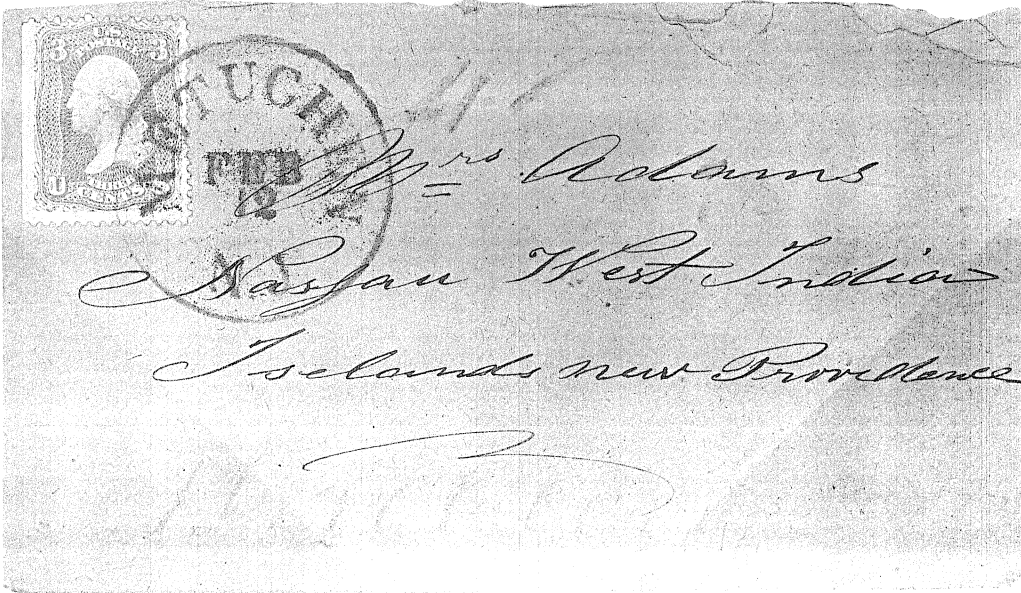 3 U.S. POSTAGE 3
U THREE CENTS S
METUCHEN
FEB
12
N.J.
Mrs Adams
Nassau West Indian
Iselands new Providence